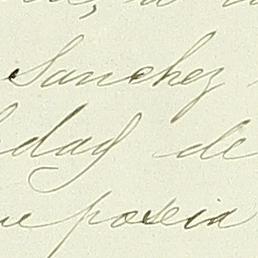 Sanchez
dad de
poseia